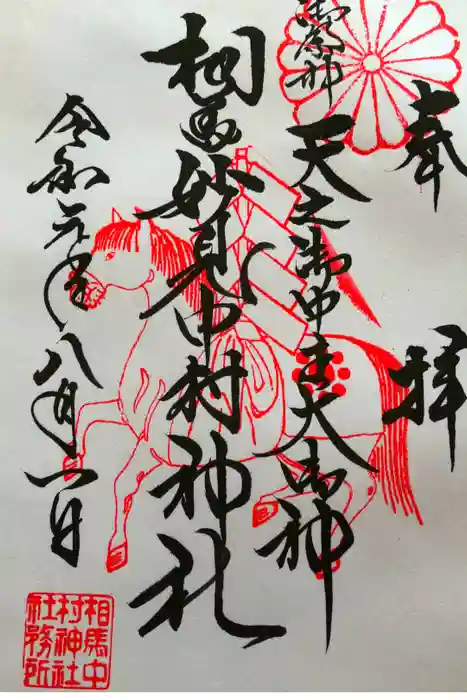 奉拝
御祭神
天之御中主大御神
相馬妙見中村神社
令和元年八月一日
相馬中
村神社
社務所